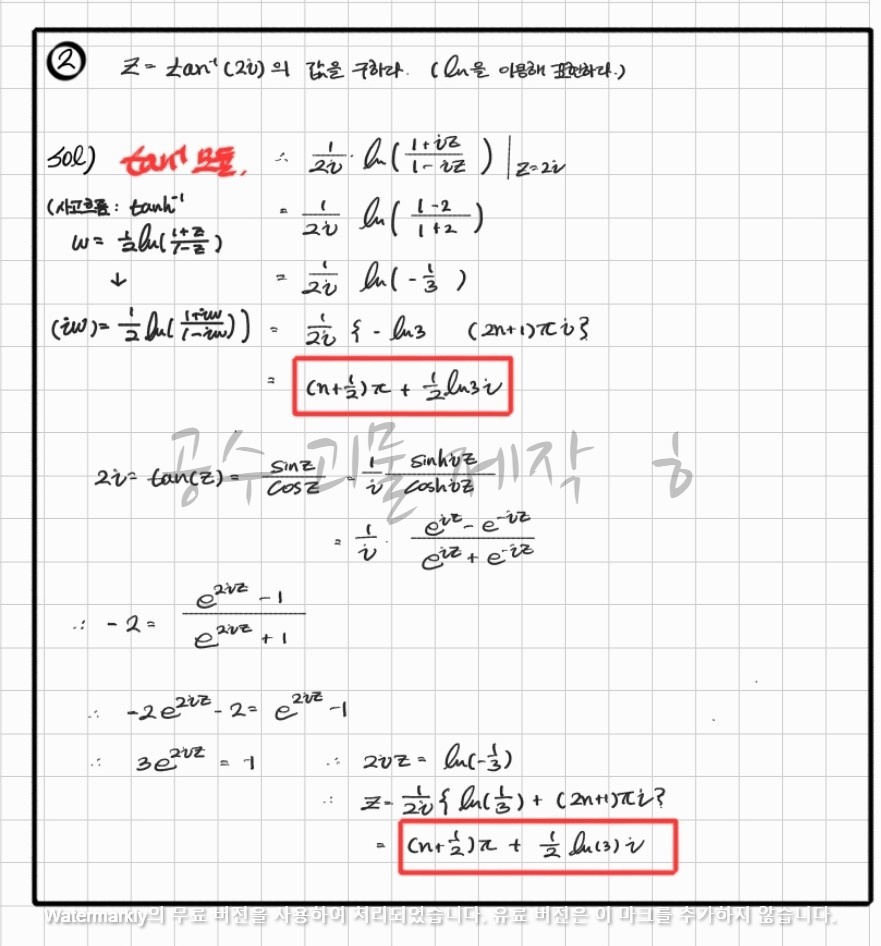 ② z = tan⁻¹(2i)의 값을 구하라. (ln을 이용해 표현하라.)
sol) tan⁻¹ 모듈. ∴ 1/2i · ln((1+iz)/(1-iz)) |z=2i
(사고흐름: tanh⁻¹ = 1/2i ln((1-2)/(1+2))
w = 1/2 ln((1+z)/(1-z))
↓ = 1/2i ln(-1/3)
(iw) = 1/2 ln((1+iw)/(1-iw))) = 1/2i { - ln3 (2n+1)πi}
= (n+1/2)π + 1/2 ln3 i
공수괴물 제작 ㅎ
2i = tan(z) = sinz/cosz = 1/i sinhiz/coshiz
= 1/i · (e^iz - e^-iz)/(e^iz + e^-iz)
∴ -2 = (e^2iz - 1)/(e^2iz + 1)
∴ -2e^2iz - 2 = e^2iz - 1
∴ 3e^2iz = -1 ∴ 2iz = ln(-1/3)
∴ z = 1/2i { ln(1/3) + (2n+1)πi}
= (n+1/2)π + 1/2 ln(3) i
Watermarkly의 무료 버전을 사용하여 처리되었습니다. 유료 버전은 이 마크를 추가하지 않습니다.